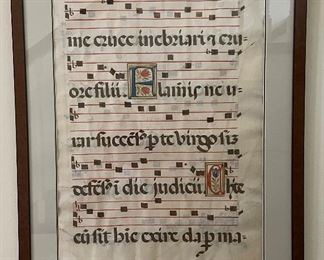 me cruce inebriari ⁊ cru
ore filii. Flamis ne u
rar succẽs. p te virgo siz
defẽs ĩ die judicii. Chr̃e
cũ sit hĩc exire da p ma